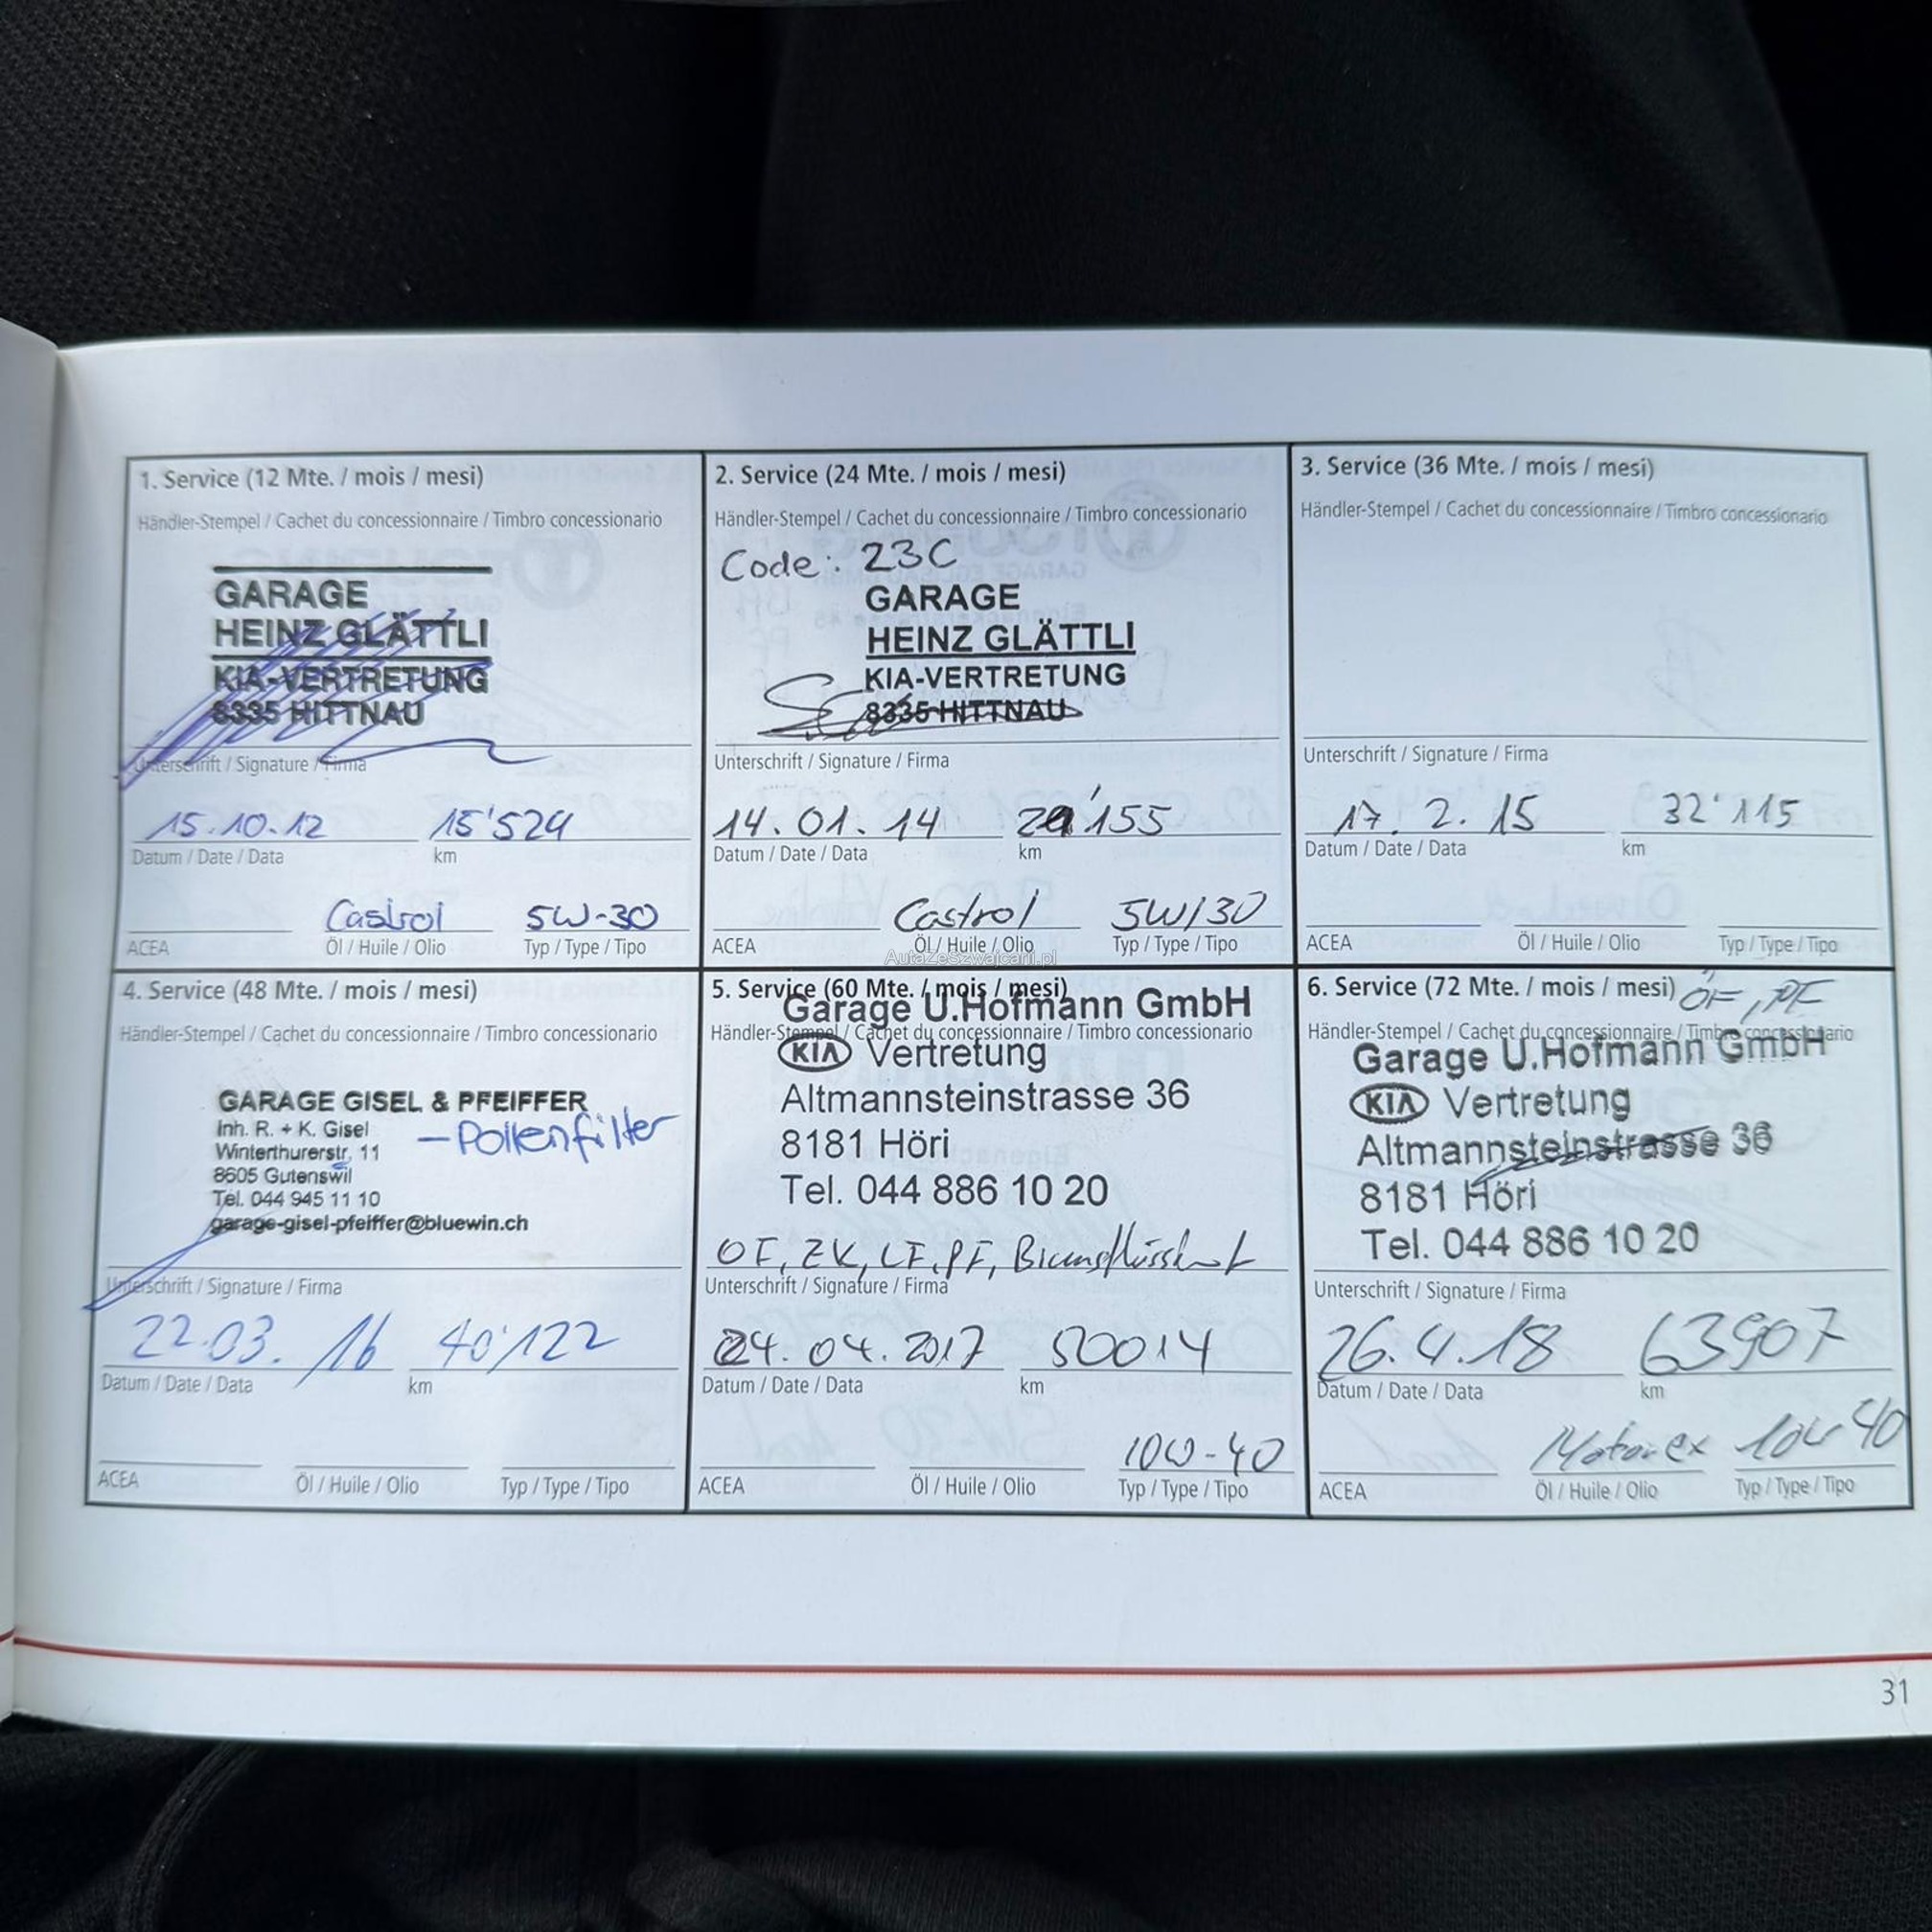 1. Service (12 Mte. / mois / mesi)
Händler-Stempel / Cachet du concessionnaire / Timbro concessionario
GARAGE
HEINZ GLÄTTLI
KIA-VERTRETUNG
8335 HITTNAU
Unterschrift / Signature / Firma
15.10.12 15'524
Datum / Date / Data km
Castrol 5W-30
ACEA Öl / Huile / Olio Typ / Type / Tipo
2. Service (24 Mte. / mois / mesi)
Händler-Stempel / Cachet du concessionnaire / Timbro concessionario
Code: 23C
GARAGE
HEINZ GLÄTTLI
KIA-VERTRETUNG
8335 HITTNAU
Unterschrift / Signature / Firma
14.01.14
Datum / Date / Data km
Castrol 5W/30
ACEA Öl / Huile / Olio Typ / Type / Tipo
AutaZeSzwajcarii.pl
3. Service (36 Mte. / mois / mesi)
Händler-Stempel / Cachet du concessionnaire / Timbro concessionario
Unterschrift / Signature / Firma
17. 2. 15 32'115
Datum / Date / Data km
ACEA Öl / Huile / Olio Typ / Type / Tipo
4. Service (48 Mte. / mois / mesi)
Händler-Stempel / Cachet du concessionnaire / Timbro concessionario
GARAGE GISEL & PFEIFFER
Inh. R. + K. Gisel
- Pollenfilter
Winterthurerstr. 11
8605 Gutenswil
Tel. 044 945 11 10
garage-gisel-pfeiffer@bluewin.ch
Unterschrift / Signature / Firma
22.03.16 40'122
Datum / Date / Data km
ACEA Öl / Huile / Olio Typ / Type / Tipo
5. Service (60 Mte. / mois / mesi)
Garage U.Hofmann GmbH
Händler-Stempel / Cachet du concessionnaire / Timbro concessionario
KIA Vertretung
Altmannsteinstrasse 36
8181 Höri
Tel. 044 886 10 20
OF, ZK, LF, PF,
Unterschrift / Signature / Firma
24.04.2017 50014
Datum / Date / Data km
10W-40
ACEA Öl / Huile / Olio Typ / Type / Tipo
6. Service (72 Mte. / mois / mesi) ÖF, PF
Händler-Stempel / Cachet du concessionnaire / Timbro concessionario
Garage U.Hofmann GmbH
KIA Vertretung
Altmannsteinstrasse 36
8181 Höri
Tel. 044 886 10 20
Unterschrift / Signature / Firma
26.4.18 63907
Datum / Date / Data km
Motorex 10W40
ACEA Öl / Huile / Olio Typ / Type / Tipo
31